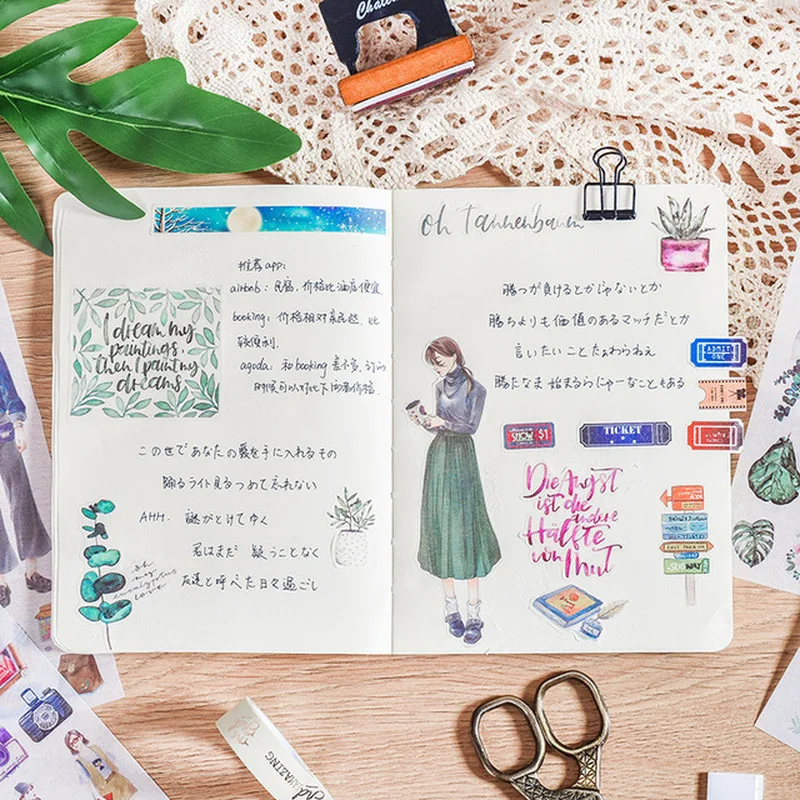 oh Tannenbaum
推荐app:
airbnb: 民宿，价格比酒店便宜
booking: 价格相对来说 比
较便利.
agoda: 和booking差不多,订的
时候可以对比下
I dream my
paintings,
then I paint my
dreams
勝つが負けるとかじゃないとか
勝ちよりも価値のあるマッチだとか
言いたいこと
勝たなま 始まるらにゃーなこともある
ADMIT
ONE
SHOW $1
TICKET
この世であなたの愛を手に入れるもの
踊るライト見つめて忘れない
AHH. 謎がとけてゆく
君はまだ 疑うことなく
友達と呼べた日々過ごし
oh
my
eucalyptus
love
Die Angst
ist die
andere
Hälfte
von Mut
SUBWAY
AMAZING